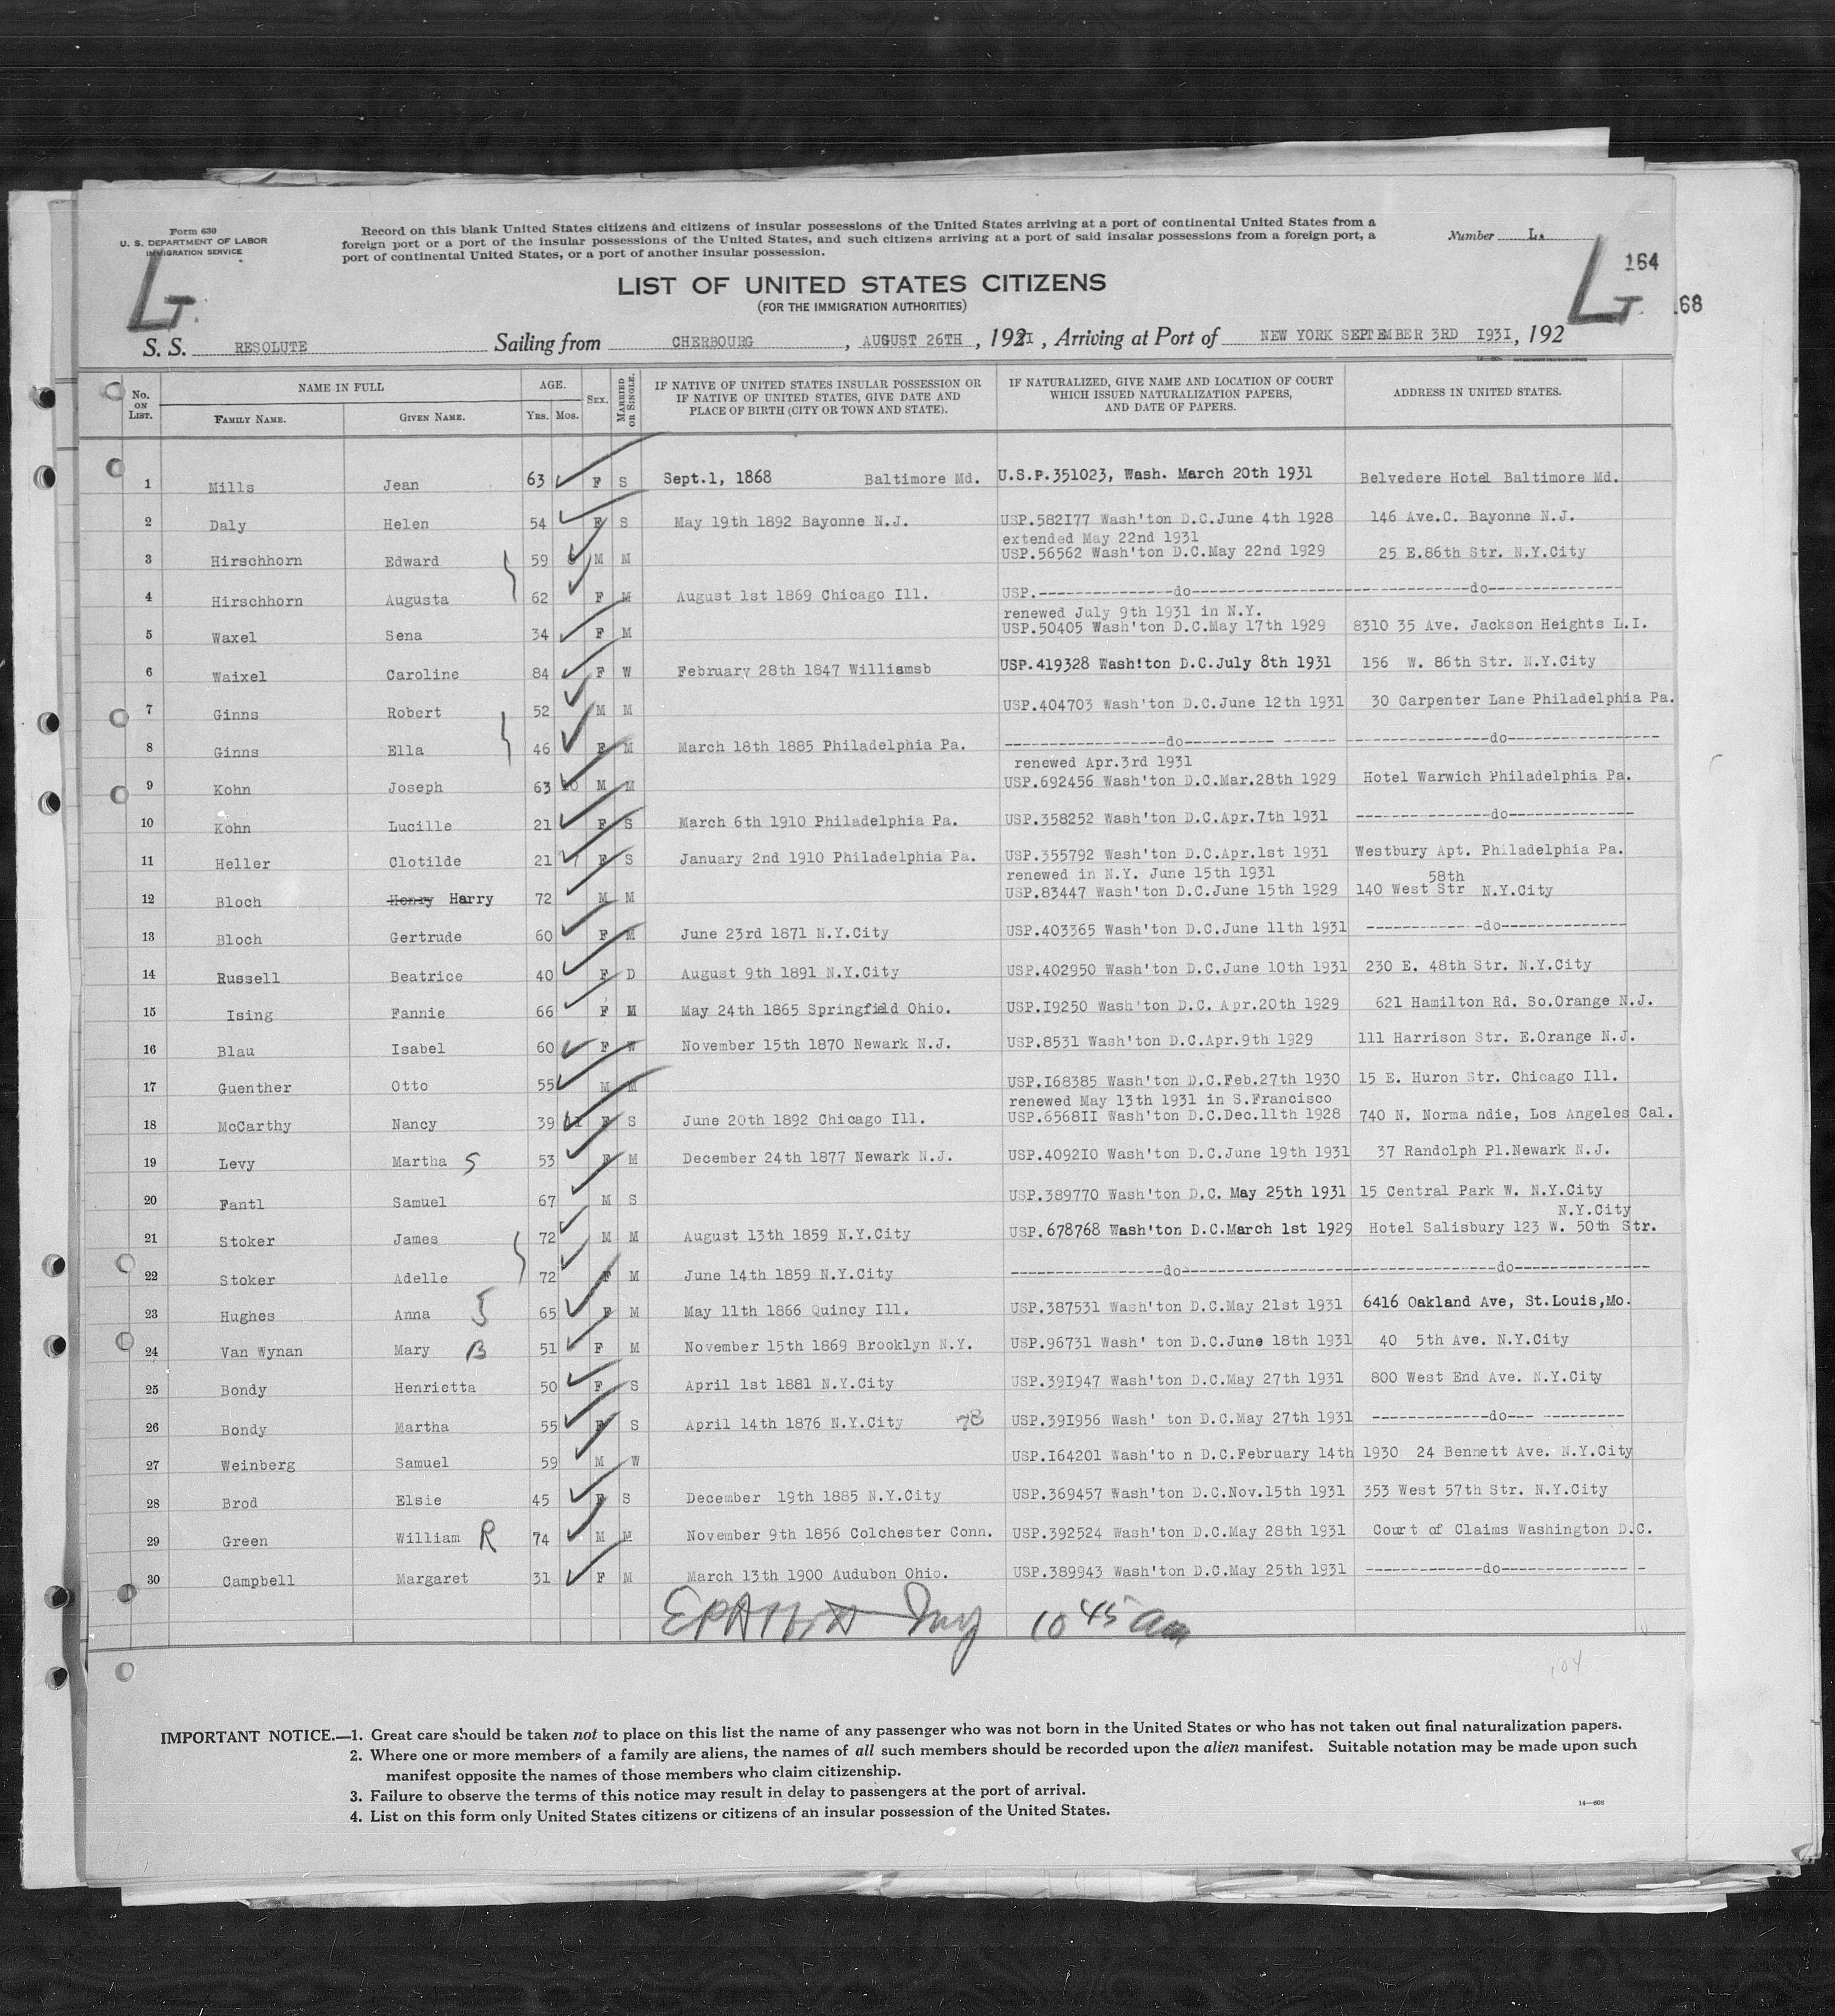 Form 630
U. S. DEPARTMENT OF LABOR
IMMIGRATION SERVICE
Record on this blank United States citizens and citizens of insular possessions of the United States arriving at a port of continental United States from a
foreign port or a port of the insular possessions of the United States, and such citizens arriving at a port of said insular possessions from a foreign port, a
port of continental United States, or a port of another insular possession.
Number L.
164
168
LIST OF UNITED STATES CITIZENS
(FOR THE IMMIGRATION AUTHORITIES)
S. S. RESOLUTE Sailing from CHERBOURG, AUGUST 26TH, 1931, Arriving at Port of NEW YORK SEPTEMBER 3RD 1931, 192
No. ON LIST. NAME IN FULL FAMILY NAME. GIVEN NAME. AGE. YRS. MOS. SEX. MARRIED OR SINGLE. IF NATIVE OF UNITED STATES INSULAR POSSESSION OR IF NATIVE OF UNITED STATES, GIVE DATE AND PLACE OF BIRTH (CITY OR TOWN AND STATE). IF NATURALIZED, GIVE NAME AND LOCATION OF COURT WHICH ISSUED NATURALIZATION PAPERS, AND DATE OF PAPERS. ADDRESS IN UNITED STATES.
1 Mills Jean 63 F S Sept.1, 1868 Baltimore Md. U.S.P.351023, Wash. March 20th 1931 Belvedere Hotel Baltimore Md.
2 Daly Helen 54 F S May 19th 1892 Bayonne N.J. USP.582I77 Wash'ton D.C.June 4th 1928 146 Ave.C. Bayonne N.J.
extended May 22nd 1931
3 Hirschhorn Edward 59 M M USP.56562 Wash'ton D.C.May 22nd 1929 25 E.86th Str. N.Y.City
4 Hirschhorn Augusta 62 F M August 1st 1869 Chicago Ill. USP.---------------do----------------------------------do---------------
renewed July 9th 1931 in N.Y.
5 Waxel Sena 34 F M USP.50405 Wash'ton D.C.May 17th 1929 8310 35 Ave. Jackson Heights L.I.
6 Waixel Caroline 84 F W February 28th 1847 Williamsb USP.419328 Wash!ton D.C.July 8th 1931 156 W. 86th Str. N.Y.City
7 Ginns Robert 52 M M USP.404703 Wash'ton D.C.June 12th 1931 30 Carpenter Lane Philadelphia Pa.
8 Ginns Ella 46 F M March 18th 1885 Philadelphia Pa. ------------------do---------- ------ ----------------do-----------------
renewed Apr.3rd 1931
9 Kohn Joseph 63 10 M M USP.692456 Wash'ton D.C.Mar.28th 1929 Hotel Warwich Philadelphia Pa.
10 Kohn Lucille 21 F S March 6th 1910 Philadelphia Pa. USP.358252 Wash'ton D.C.Apr.7th 1931 ---------------do-------------
11 Heller Clotilde 21 7 F S January 2nd 1910 Philadelphia Pa. USP.355792 Wash'ton D.C.Apr.1st 1931 Westbury Apt. Philadelphia Pa.
renewed in N.Y. June 15th 1931 58th
12 Bloch Henry Harry 72 M M USP.83447 Wash'ton D.C.June 15th 1929 140 West Str N.Y.City
13 Bloch Gertrude 60 F M June 23rd 1871 N.Y.City USP.403365 Wash'ton D.C.June 11th 1931 -------------do--------------
14 Russell Beatrice 40 F D August 9th 1891 N.Y.City USP.402950 Wash'ton D.C.June 10th 1931 230 E. 48th Str. N.Y.City
15 Ising Fannie 66 F M May 24th 1865 Springfield Ohio. USP.I9250 Wash'ton D.C. Apr.20th 1929 621 Hamilton Rd. So.Orange N.J.
16 Blau Isabel 60 F W November 15th 1870 Newark N.J. USP.8531 Wash'ton D.C.Apr.9th 1929 111 Harrison Str. E.Orange N.J.
17 Guenther Otto 55 M M USP.I68385 Wash'ton D.C.Feb.27th 1930 15 E. Huron Str. Chicago Ill.
renewed May 13th 1931 in S.Francisco
18 McCarthy Nancy 39 11 F S June 20th 1892 Chicago Ill. USP.6568II Wash'ton D.C.Dec.11th 1928 740 N. Norma ndie, Los Angeles Cal.
19 Levy Martha S 53 F M December 24th 1877 Newark N.J. USP.4092I0 Wash'ton D.C.June 19th 1931 37 Randolph Pl.Newark N.J.
20 Fantl Samuel 67 M S USP.389770 Wash'ton D.C. May 25th 1931 15 Central Park W. N.Y.City
N.Y.City
21 Stoker James 72 M M August 13th 1859 N.Y.City USP.678768 Wash'ton D.C.March 1st 1929 Hotel Salisbury 123 W. 50th Str.
22 Stoker Adelle 72 F M June 14th 1859 N.Y.City -----------------do-----------------------------------do---------------
23 Hughes Anna J 65 F M May 11th 1866 Quincy Ill. USP.387531 Wash'ton D.C.May 21st 1931 6416 Oakland Ave, St.Louis,Mo.
24 Van Wynan Mary B 51 F M November 15th 1869 Brooklyn N.Y. USP.96731 Wash' ton D.C.June 18th 1931 40 5th Ave. N.Y.City
25 Bondy Henrietta 50 F S April 1st 1881 N.Y.City USP.39I947 Wash'ton D.C.May 27th 1931 800 West End Ave. N.Y.City
26 Bondy Martha 55 F S April 14th 1876 N.Y.City 78 USP.39I956 Wash' ton D.C.May 27th 1931 -------------do--- ---------
27 Weinberg Samuel 59 M W USP.I64201 Wash'to n D.C.February 14th 1930 24 Bennett Ave. N.Y.City
28 Brod Elsie 45 F S December 19th 1885 N.Y.City USP.369457 Wash'ton D.C.Nov.15th 1931 353 West 57th Str. N.Y.City
29 Green William R 74 M M November 9th 1856 Colchester Conn. USP.392524 Wash'ton D.C.May 28th 1931 Court of Claims Washington D.C.
30 Campbell Margaret 31 F M March 13th 1900 Audubon Ohio. USP.389943 Wash'ton D.C.May 25th 1931 -------------do-------------- -
10 45 am
104
IMPORTANT NOTICE.—1. Great care should be taken not to place on this list the name of any passenger who was not born in the United States or who has not taken out final naturalization papers.
2. Where one or more members of a family are aliens, the names of all such members should be recorded upon the alien manifest. Suitable notation may be made upon such
manifest opposite the names of those members who claim citizenship.
3. Failure to observe the terms of this notice may result in delay to passengers at the port of arrival.
4. List on this form only United States citizens or citizens of an insular possession of the United States.
14—608